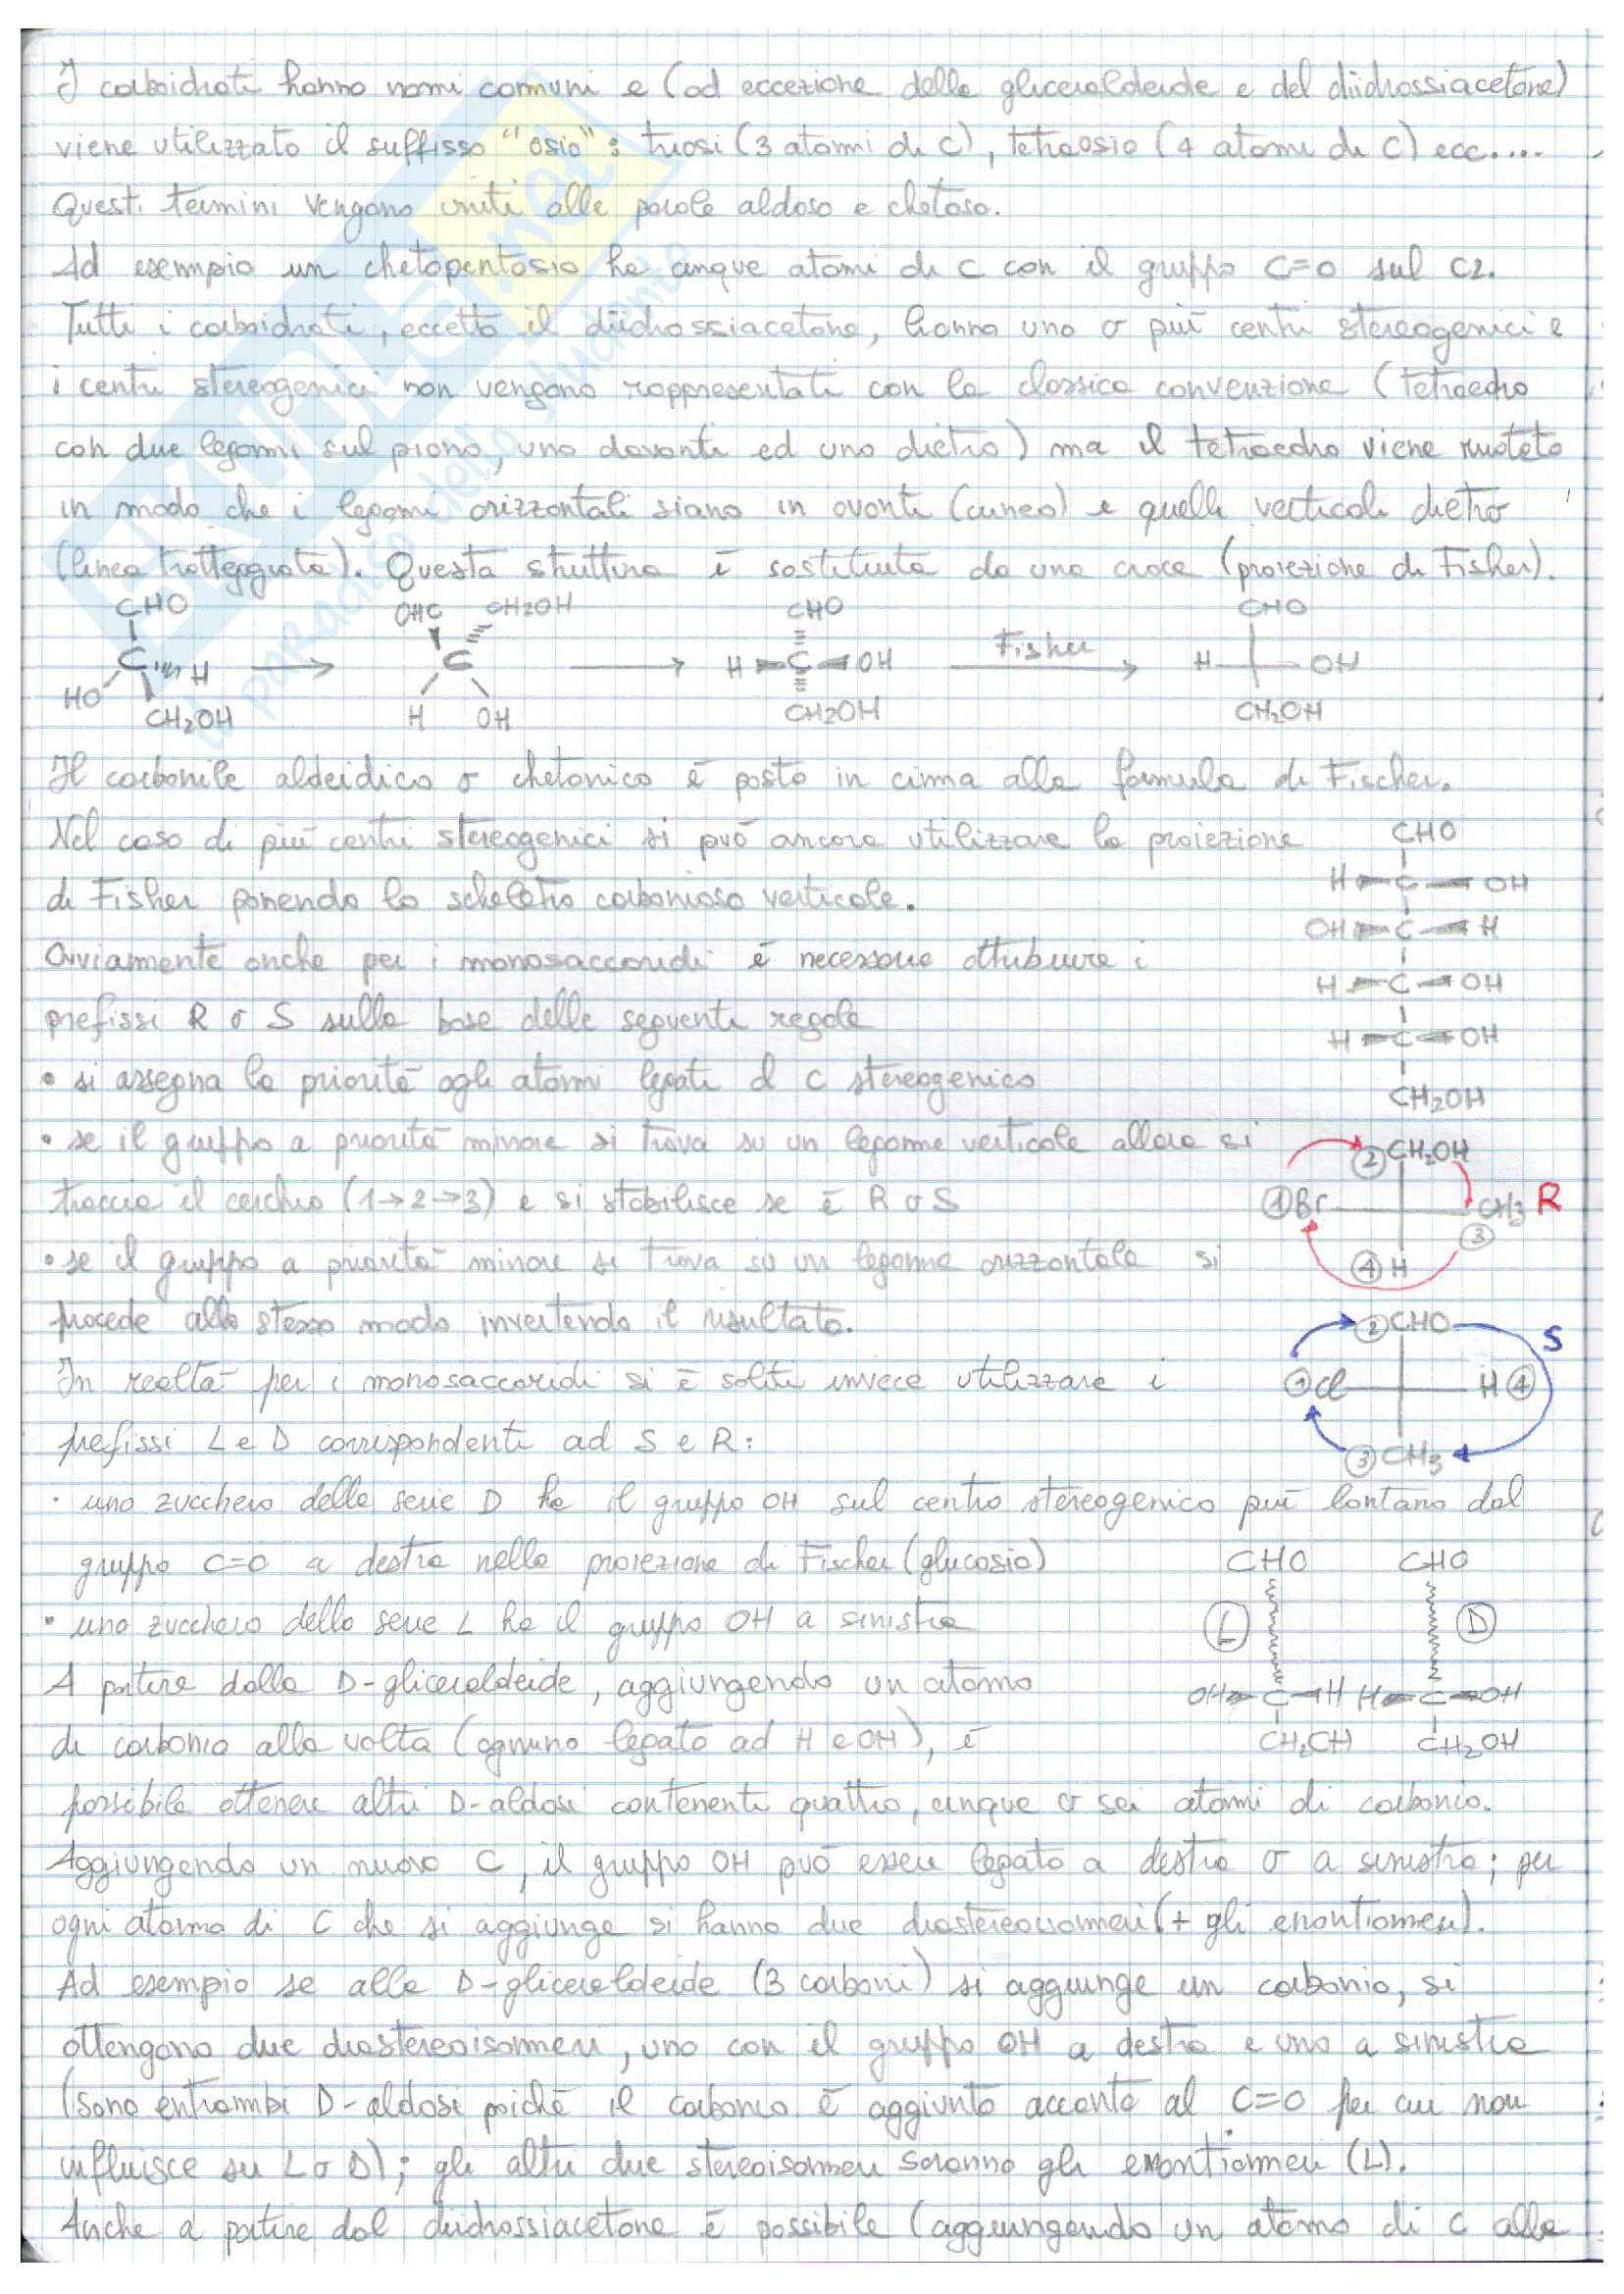 I carboidrati hanno nomi comuni e (ad eccezione della gliceraldeide e del diidrossiacetone)
viene utilizzato il suffisso "osio": triosi (3 atomi di C), tetraosio (4 atomi di C) ecc....
Questi termini vengono uniti alle parole aldoso e chetoso.
Ad esempio un chetopentosio ha cinque atomi di C con il gruppo C=O sul C2.
Tutti i carboidrati, eccetto il diidrossiacetone, hanno uno o più centri stereogenici e
i centri stereogenici non vengono rappresentati con la classica convenzione (tetraedro
con due legami sul piano, uno davanti ed uno dietro) ma il tetraedro viene ruotato
in modo che i legami orizzontali siano in avanti (cuneo) e quelli verticali dietro
(linea tratteggiata). Questa struttura è sostituita da una croce (proiezione di Fisher).
CHO OHC CH2OH CHO CHO
C H C H C OH Fisher H OH
HO CH2OH H OH CH2OH CH2OH
Il carbonile aldeidico o chetonico è posto in cima alla formula di Fischer.
Nel caso di più centri stereogenici si può ancora utilizzare la proiezione
CHO
di Fisher ponendo lo scheletro carbonioso verticale.
H C OH
OH C H
Ovviamente anche per i monosaccaridi è necessario attribuire i
H C OH
prefissi R o S sulla base delle seguenti regole
H C OH
• si assegna la priorità agli atomi legati al C stereogenico
CH2OH
• se il gruppo a priorità minore si trova su un legame verticale allora si
② CH2OH
traccia il cerchio (1→2→3) e si stabilisce se è R o S
① Br CH3 R
③
• se il gruppo a priorità minore si trova su un legame orizzontale si
④ H
procede allo stesso modo invertendo il risultato.
② CHO S
In realtà per i monosaccaridi si è soliti invece utilizzare i
① Cl H ④
prefissi L e D corrispondenti ad S e R:
③ CH3
· uno zucchero della serie D ha il gruppo OH sul centro stereogenico più lontano dal
gruppo C=O a destra nella proiezione di Fischer (glucosio)
CHO CHO
• uno zucchero della serie L ha il gruppo OH a sinistra
L D
A partire dalla D-gliceraldeide, aggiungendo un atomo
OH C H H C OH
di carbonio alla volta (ognuno legato ad H e OH), è
CH2OH CH2OH
possibile ottenere altri D-aldosi contenenti quattro, cinque o sei atomi di carbonio.
Aggiungendo un nuovo C, il gruppo OH può essere legato a destra o a sinistra; per
ogni atomo di C che si aggiunge si hanno due diastereoisomeri (+ gli enantiomeri).
Ad esempio se alla D-gliceraldeide (3 carboni) si aggiunge un carbonio, si
ottengono due diastereoisomeri, uno con il gruppo OH a destra e uno a sinistra
(sono entrambi D-aldosi poiché il carbonio è aggiunto accanto al C=O per cui non
influisce su L o D); gli altri due stereoisomeri saranno gli enantiomeri (L).
Anche a partire dal diidrossiacetone è possibile (aggiungendo un atomo di C alla